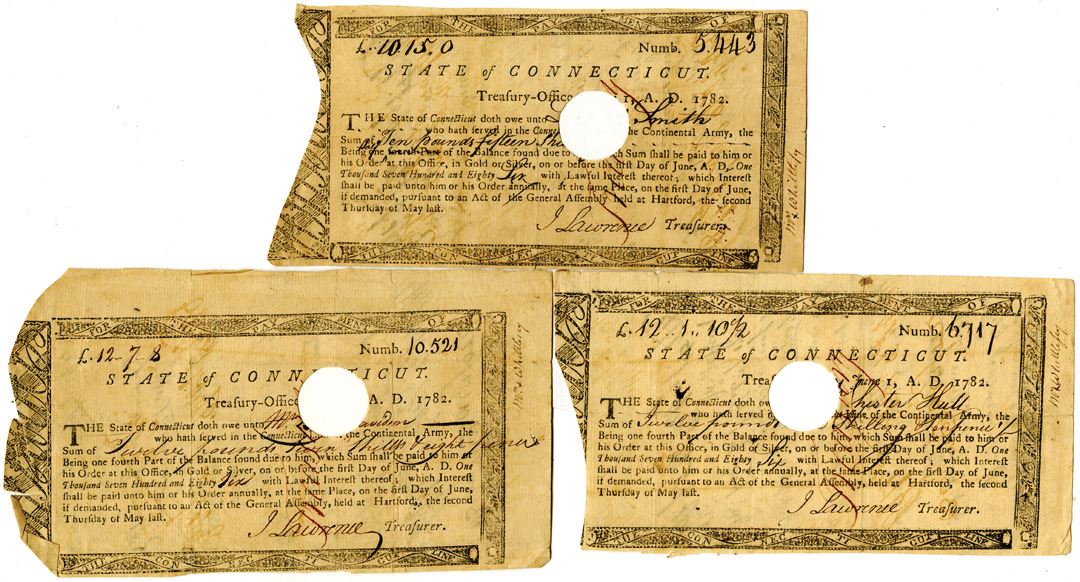 FOR THE PAYMENT OF
£ 10.15.0 Numb. 5.443
STATE of CONNECTICUT.
Treasury-Office 1, A. D. 1782.
THE State of Connecticut doth owe unto Smith
who hath served in the the Continental Army, the
Sum of Ten pounds fifteen
Being one fourth Part of the Balance found due to which Sum shall be paid to him or
his Order at this Office, in Gold or Silver, on or before the first Day of June, A. D. One
Thousand Seven Hundred and Eighty Six with Lawful Interest thereof; which Interest
shall be paid unto him or his Order annually, at the same Place, on the first Day of June,
if demanded, pursuant to an Act of the General Assembly held at Hartford, the second
Thursday of May last.
J Lawrence Treasurer.
THE CONNECTICUT LINE
FOR THE PAYMENT OF
£. 12-7-8 Numb. 10.521
STATE of CONNECTICUT.
Treasury-Office A. D. 1782.
THE State of Connecticut doth owe unto
who hath served in the Connecticut the Continental Army, the
Sum of Twelve pounds Eight pence
Being one fourth Part of the Balance found due to him, which Sum shall be paid to him or
his Order at this Office, in Gold or Silver, on or before the first Day of June, A. D. One
Thousand Seven Hundred and Eighty Six with Lawful Interest thereof; which Interest
shall be paid unto him or his Order annually, at the same Place, on the first Day of June,
if demanded, pursuant to an Act of the General Assembly, held at Hartford, the second
Thursday of May last.
J Lawrence Treasurer.
THE CONNECTICUT LINE
FOR THE PAYMENT OF
£ 12..1..10½ Numb. 6.717
STATE of CONNECTICUT.
June 1, A. D. 1782.
THE State of Connecticut doth owe
who hath served Line of the Continental Army, the
Sum of Twelve pounds Shilling Tenpence ½
Being one fourth Part of the Balance found due to him, which Sum shall be paid to him or
his Order at this Office, in Gold or Silver, on or before the first Day of June, A. D. One
Thousand Seven Hundred and Eighty Six with Lawful Interest thereof; which Interest
shall be paid unto him or his Order annually, at the same Place, on the first Day of June,
if demanded, pursuant to an Act of the General Assembly, held at Hartford, the second
Thursday of May last.
J Lawrence Treasurer.
THE CONNECTICUT LINE